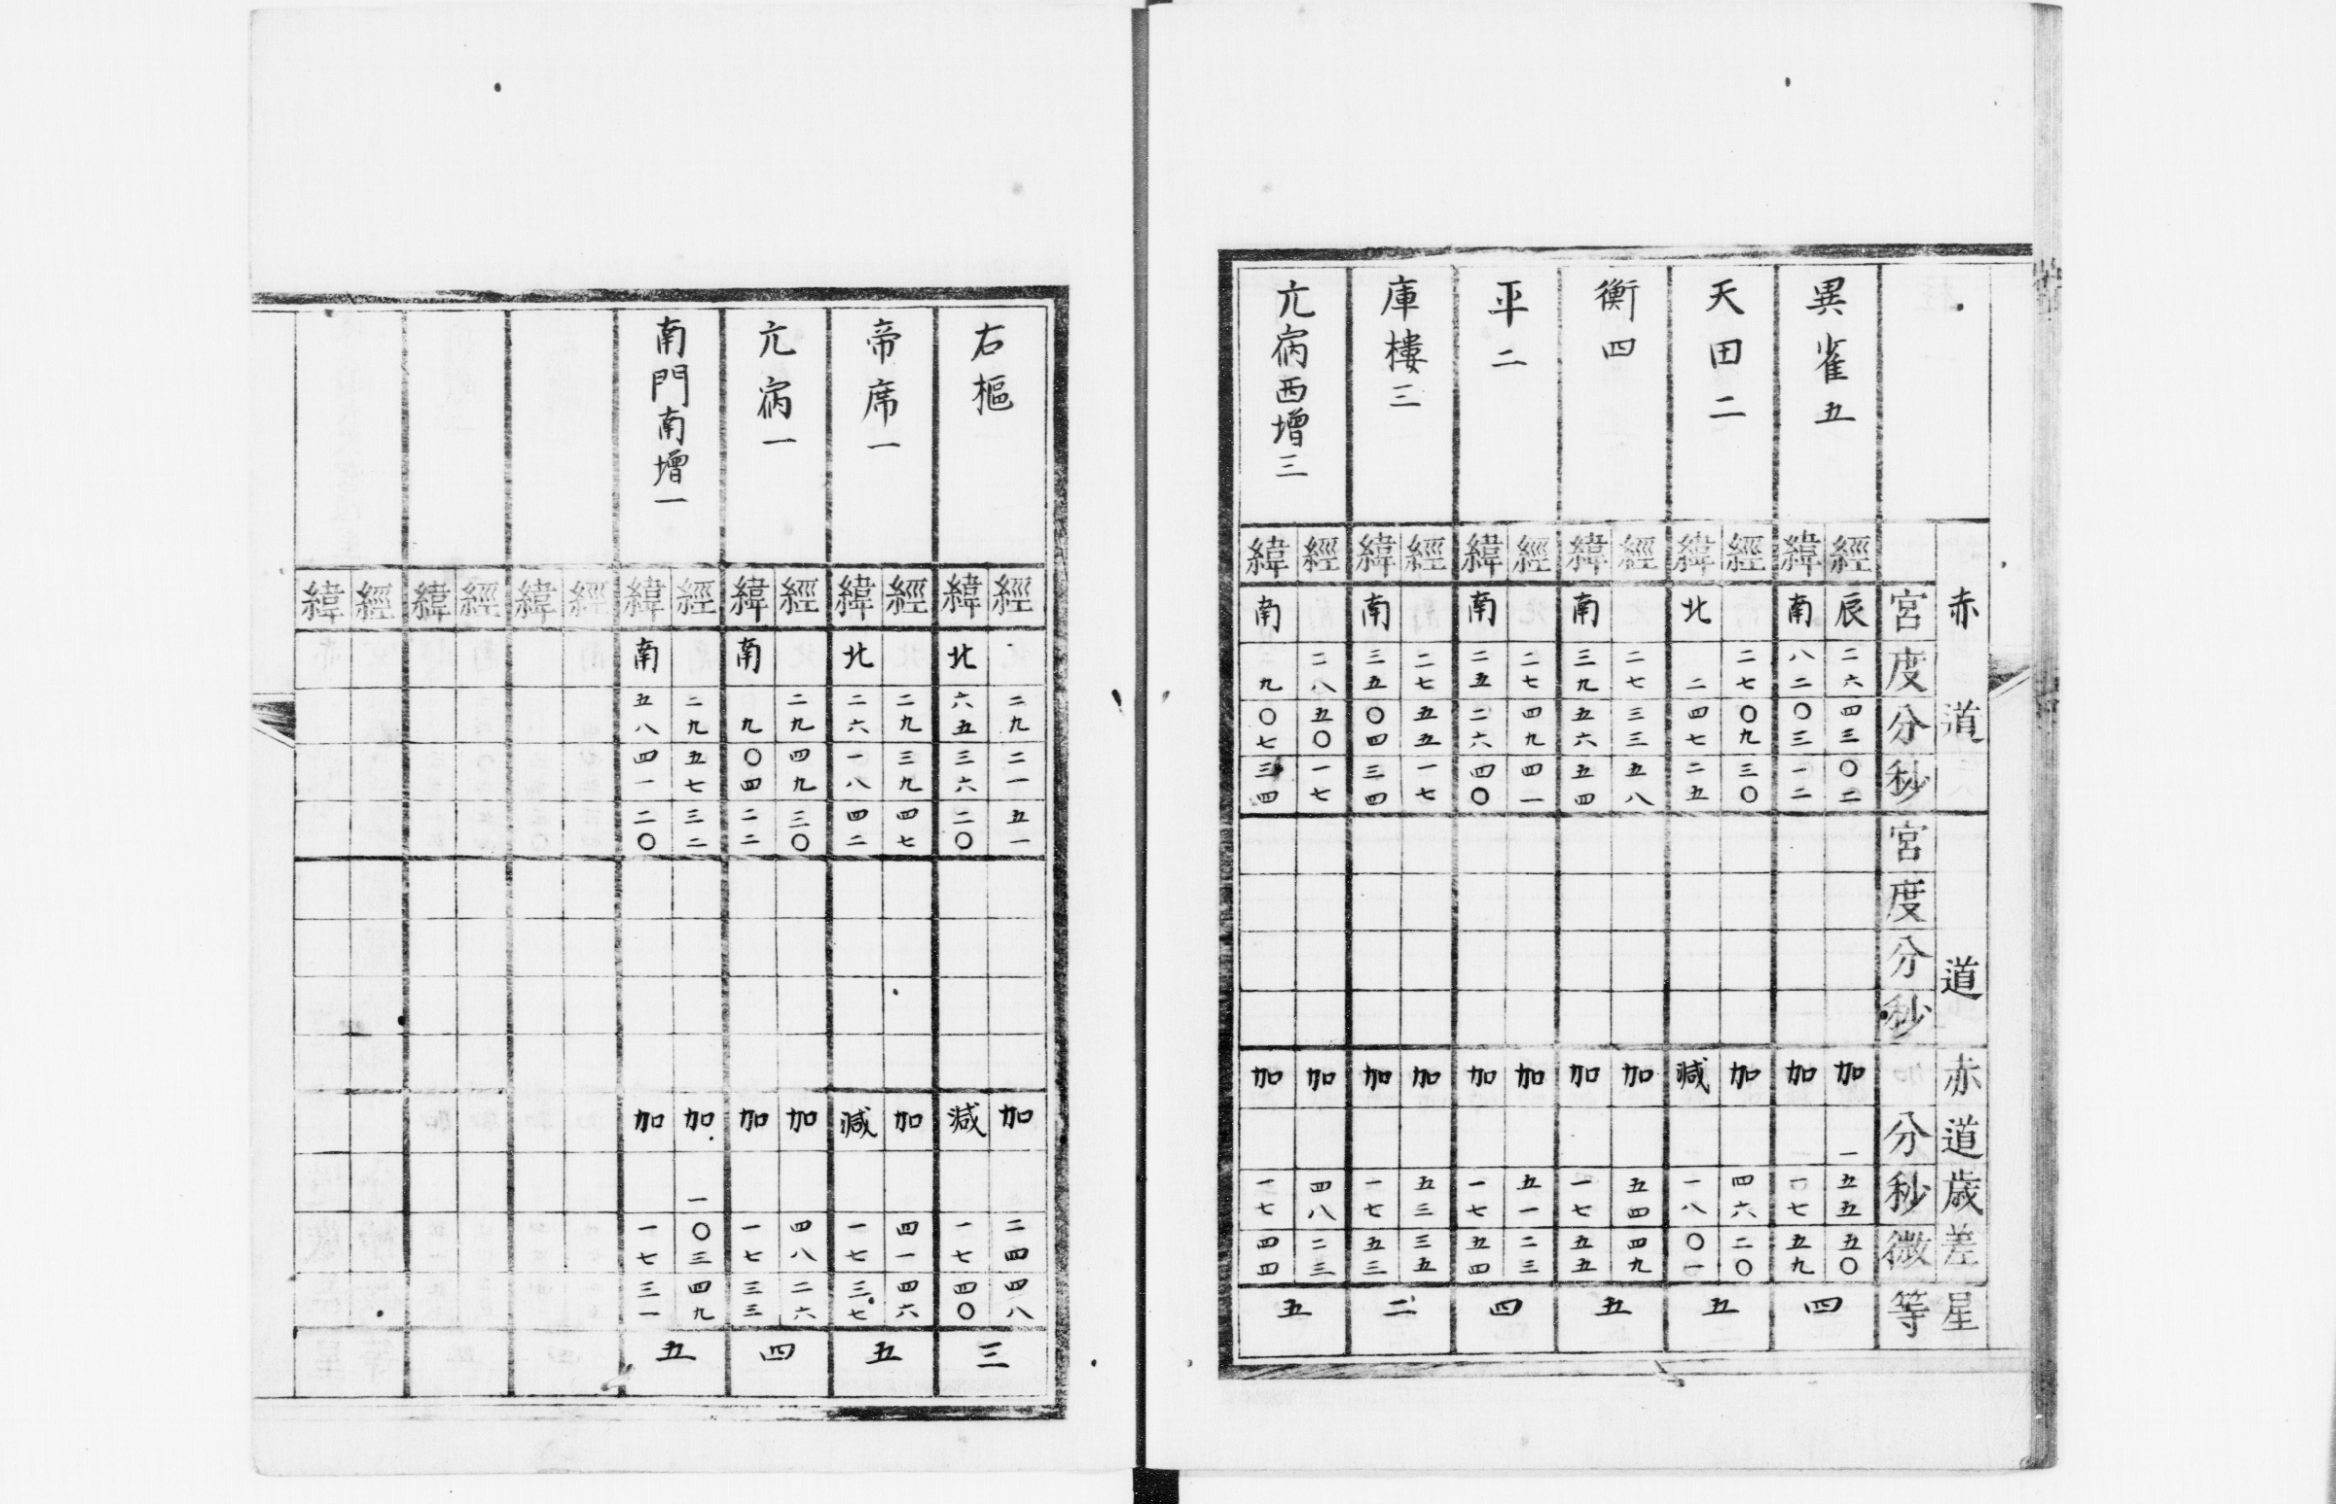 赤道 道 赤道歳差 星
宮度分秒 宮度分秒 分秒微 等
異雀五
經 辰 二六 四三 〇二 加 一 五五 五〇
緯 南 八二 〇三 一二 加 一七 五九
四
天田二
經 二七 〇九 三〇 加 四六 二〇
緯 北 二 四七 二五 減 一八 〇一
五
衡四
經 二七 三三 五八 加 五四 四九
緯 南 三九 五六 五四 加 一七 五五
五
平二
經 二七 四九 四一 加 五一 二三
緯 南 二五 二六 四〇 加 一七 五四
四
庫樓三
經 二七 五五 一七 加 五三 三五
緯 南 三五 〇四 三四 加 一七 五三
二
亢宿西增三
經 二八 五〇 一七 加 四八 二三
緯 南 九 〇七 三四 加 一七 四四
五
右樞
經 二九 二一 五一 加 二四 四八
緯 北 六五 三六 二〇 減 一七 四〇
三
帝席一
經 二九 三九 四七 加 四一 四六
緯 北 二六 一八 四二 減 一七 三七
五
亢宿一
經 二九 四九 三〇 加 四八 二六
緯 南 九 〇四 二二 加 一七 三三
四
南門南增一
經 二九 五七 三二 加 一 〇三 四九
緯 南 五八 四一 二〇 加 一七 三一
五
經
緯
經
緯
經
緯